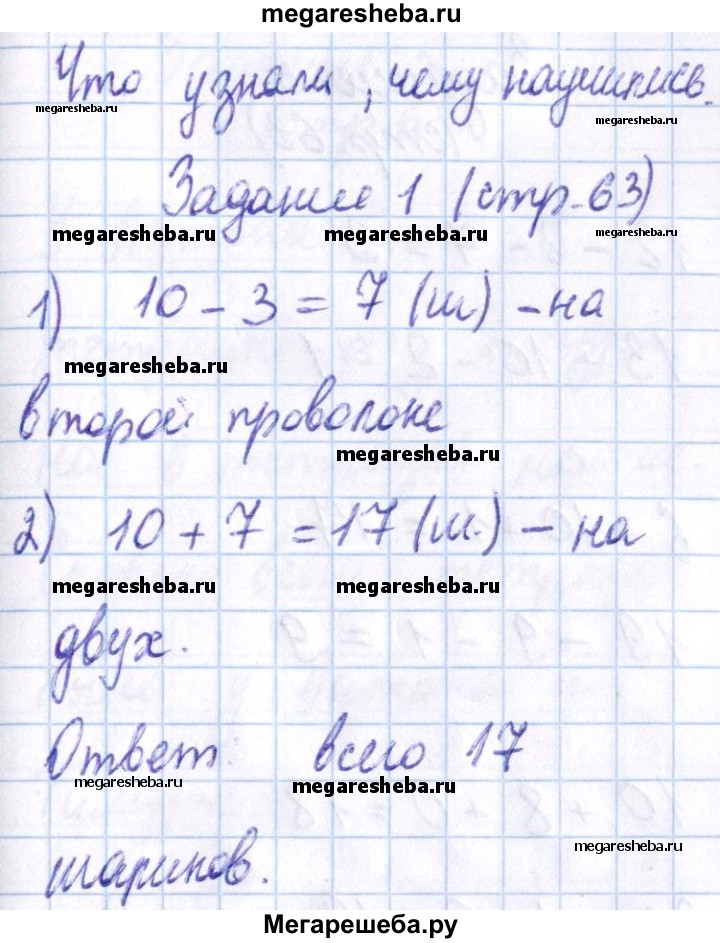 megaresheba.ru
Что узнали, чему научились.
megaresheba.ru
megaresheba.ru
Задание 1 (стр. 63)
megaresheba.ru megaresheba.ru megaresheba.ru
1) 10 - 3 = 7 (ш.) - на
megaresheba.ru
второй проволоке
megaresheba.ru
2) 10 + 7 = 17 (ш.) - на
megaresheba.ru megaresheba.ru
двух.
Ответ: всего 17
megaresheba.ru megaresheba.ru
megaresheba.ru
шариков.
Мегарешеба.ру